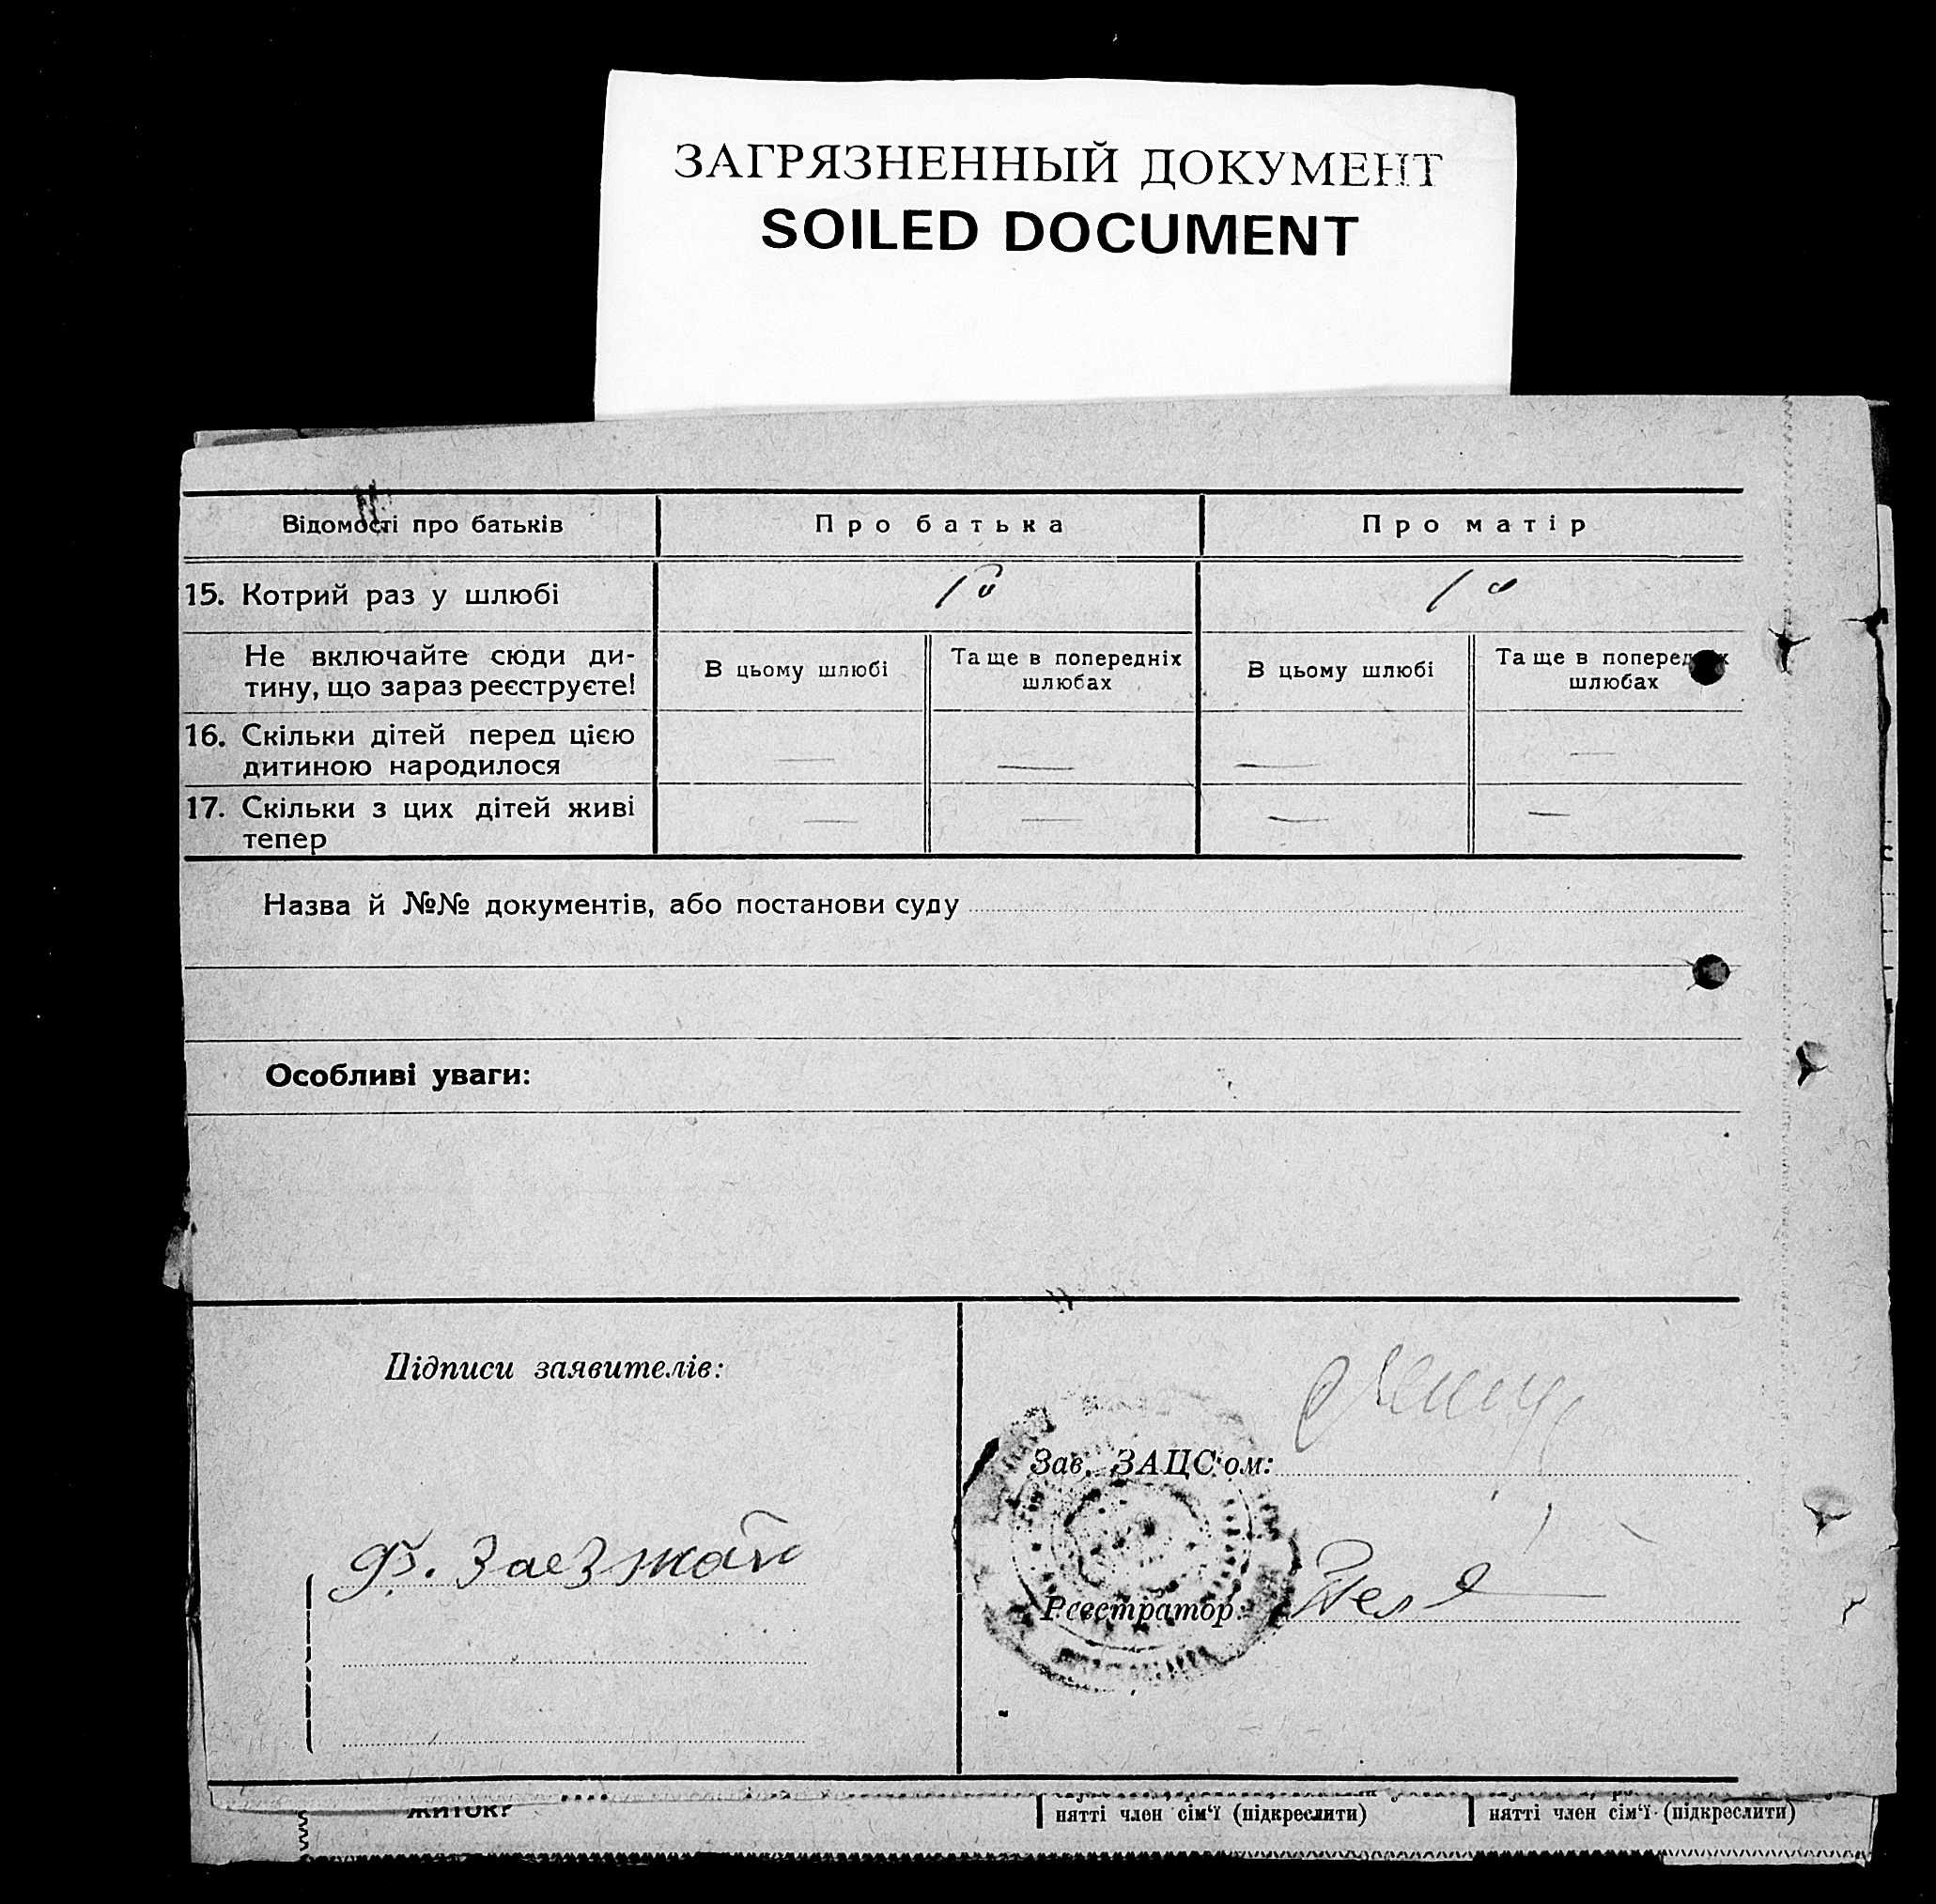 ЗАГРЯЗНЕННЫЙ ДОКУМЕНТ
SOILED DOCUMENT
Відомості про батьків
Про батька
Про матір
15. Котрий раз у шлюбі
1й
1а
Не включайте сюди ди-
тину, що зараз реєструєте!
В цьому шлюбі
Та ще в попередніх
шлюбах
В цьому шлюбі
Та ще в попередніх
шлюбах
16. Скільки дітей перед цією
дитиною народилося
— — — —
17. Скільки з цих дітей живі
тепер
— — — —
Назва й №№ документів, або постанови суду
Особливі уваги:
Підписи заявителів:
Зав. ЗАЦС'ом:
Реєстратор:
нятті член сім'ї (підкреслити)
нятті член сім'ї (підкреслити)